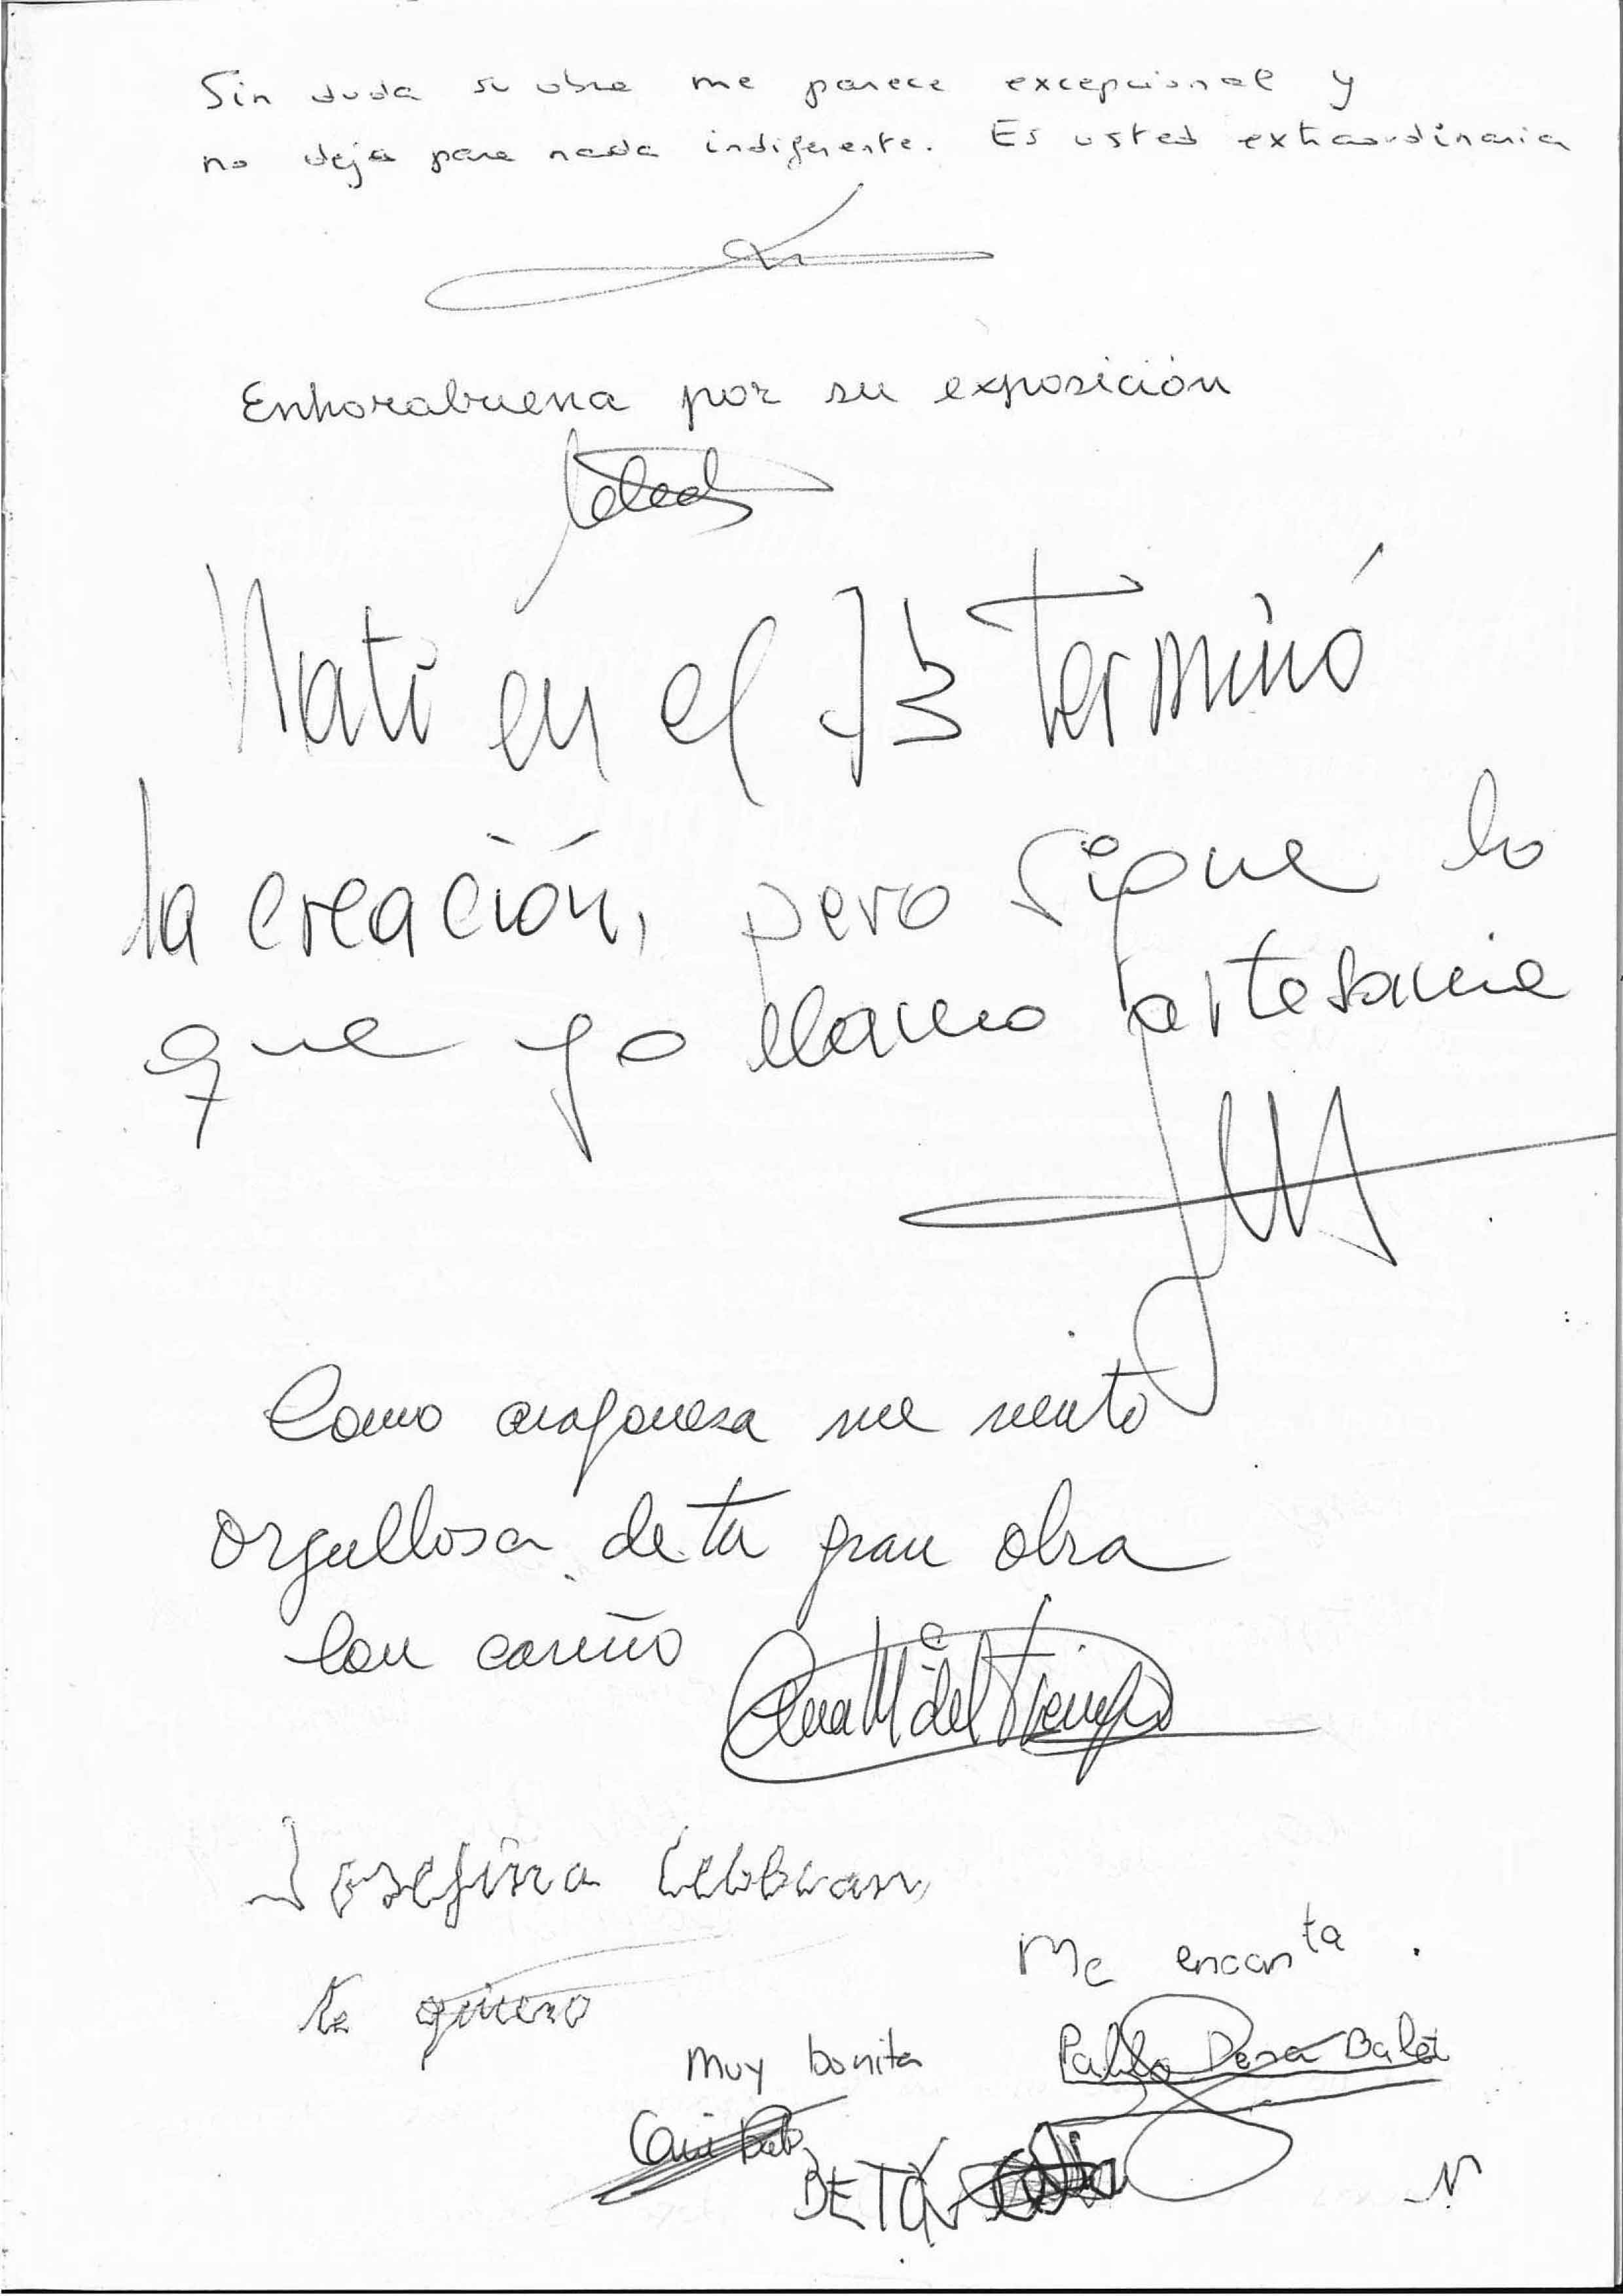 Sin duda su obra me parece excepcional y
no deja para nada indiferente. Es usted extraordinaria
Enhorabuena por su exposición
Nati en el 73 terminó
la creación, pero sigue lo
que yo llamo artesanía
Como aragonesa me siento
orgullosa de tu gran obra
Con cariño Ana Mª del Tiempo
Josefina
te quiero
Me encanta.
muy bonita
Pablo
BETO